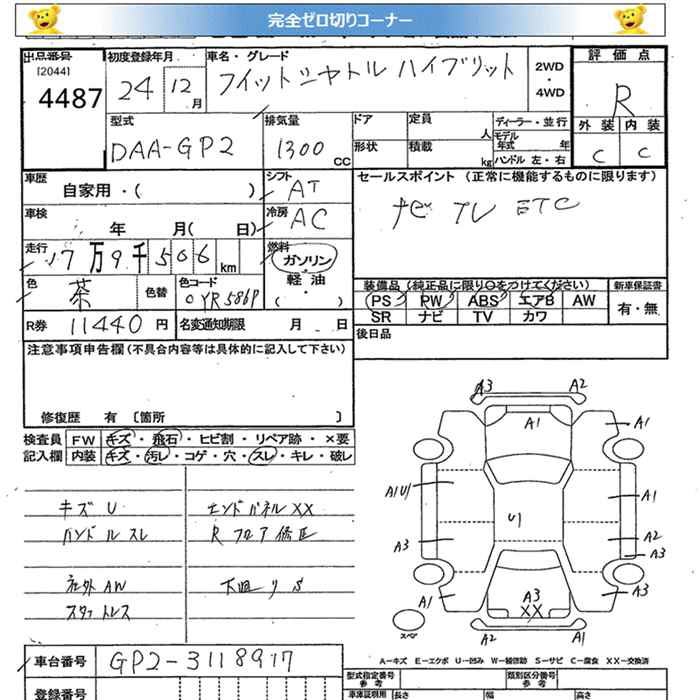 完全ゼロ切りコーナー
出品番号
[2044]
4487
初度登録年月
24 12月
車名・グレード
フイットシャトル ハイブリット
2WD
・
4WD
評価点
R
外装 内装
C C
型式
DAA-GP2
排気量
1300 CC
ドア
形状
定員 人
積載 kg
ディーラー・並行
モデル年式 年
ハンドル 左・右
車歴
自家用・( )
シフト
AT
車検
年 月( 日)
冷房
AC
走行
17万9千506km
燃料
ガソリン・
軽油
・( )
色
茶
色替
色コード
YR586P
R券 11440円
名変通知期限 月 日
セールスポイント (正常に機能するものに限ります)
ナビ TV ETC
装備品 (純正品に限り○をつけてください)
PS PW ABS エアB AW
SR ナビ TV カワ
新車保証書
有・無
後日品
注意事項申告欄(不具合内容等は具体的に記入して下さい)
修復歴 有 〔箇所 〕
検査員
記入欄
FW キズ・飛石・ヒビ割・リペア跡・×要
内装 キズ・汚レ・コゲ・穴・スレ・キレ・破レ
キズ U
ハンドルスレ
社外 AW
スタットレス
エンドパネルXX
Rフロア修正
下廻りS
A3 A2
A1 A1
A1U1 A1
U1
A3 A2
A3
A1 A3 XX A3
スペア
A2 A1
A－キズ E－エクボ U－凹み W－補修跡 S－サビ C－腐食 XX－交換済
車台番号
GP2-3118917
登録番号
型式指定番号
参考
類別区分番号
参考
車庫証明用 長さ 幅 高さ